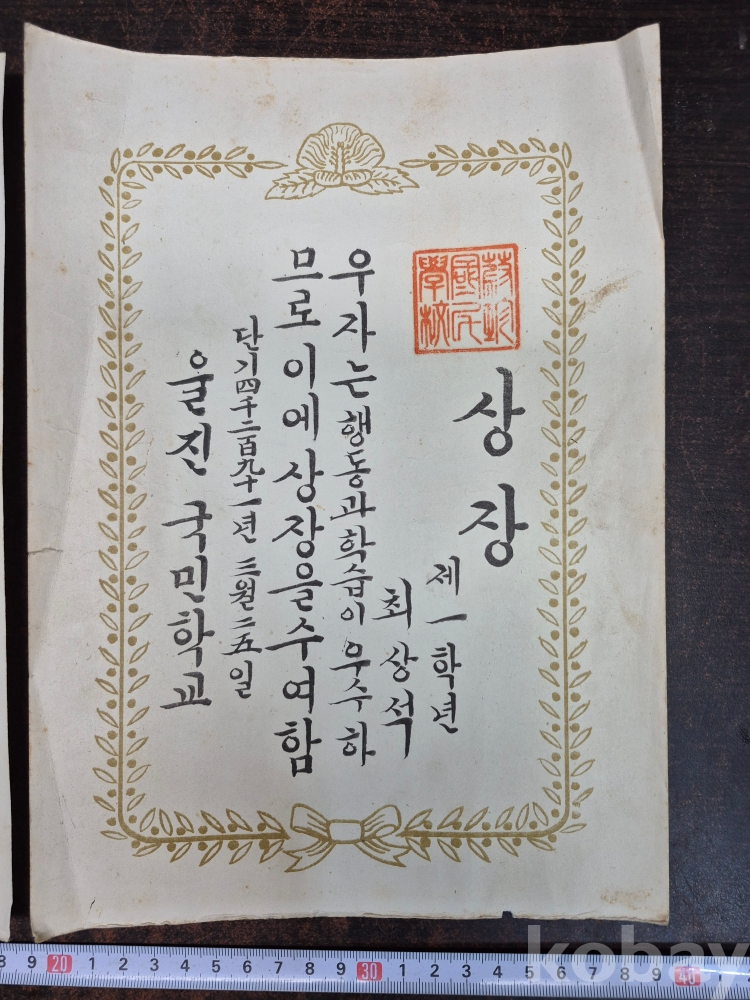 蔚珍
國民
學校
상장
제一학년
최상석
우자는 행동과 학습이 우수하
므로 이에 상장을 수여함
단기四千二百九十一년 三월二五일
울진 국민학교
8 9 20 1 2 3 4 5 6 7 8 9 30 1 2 3 4 5 6 7 8 9 40
kobay